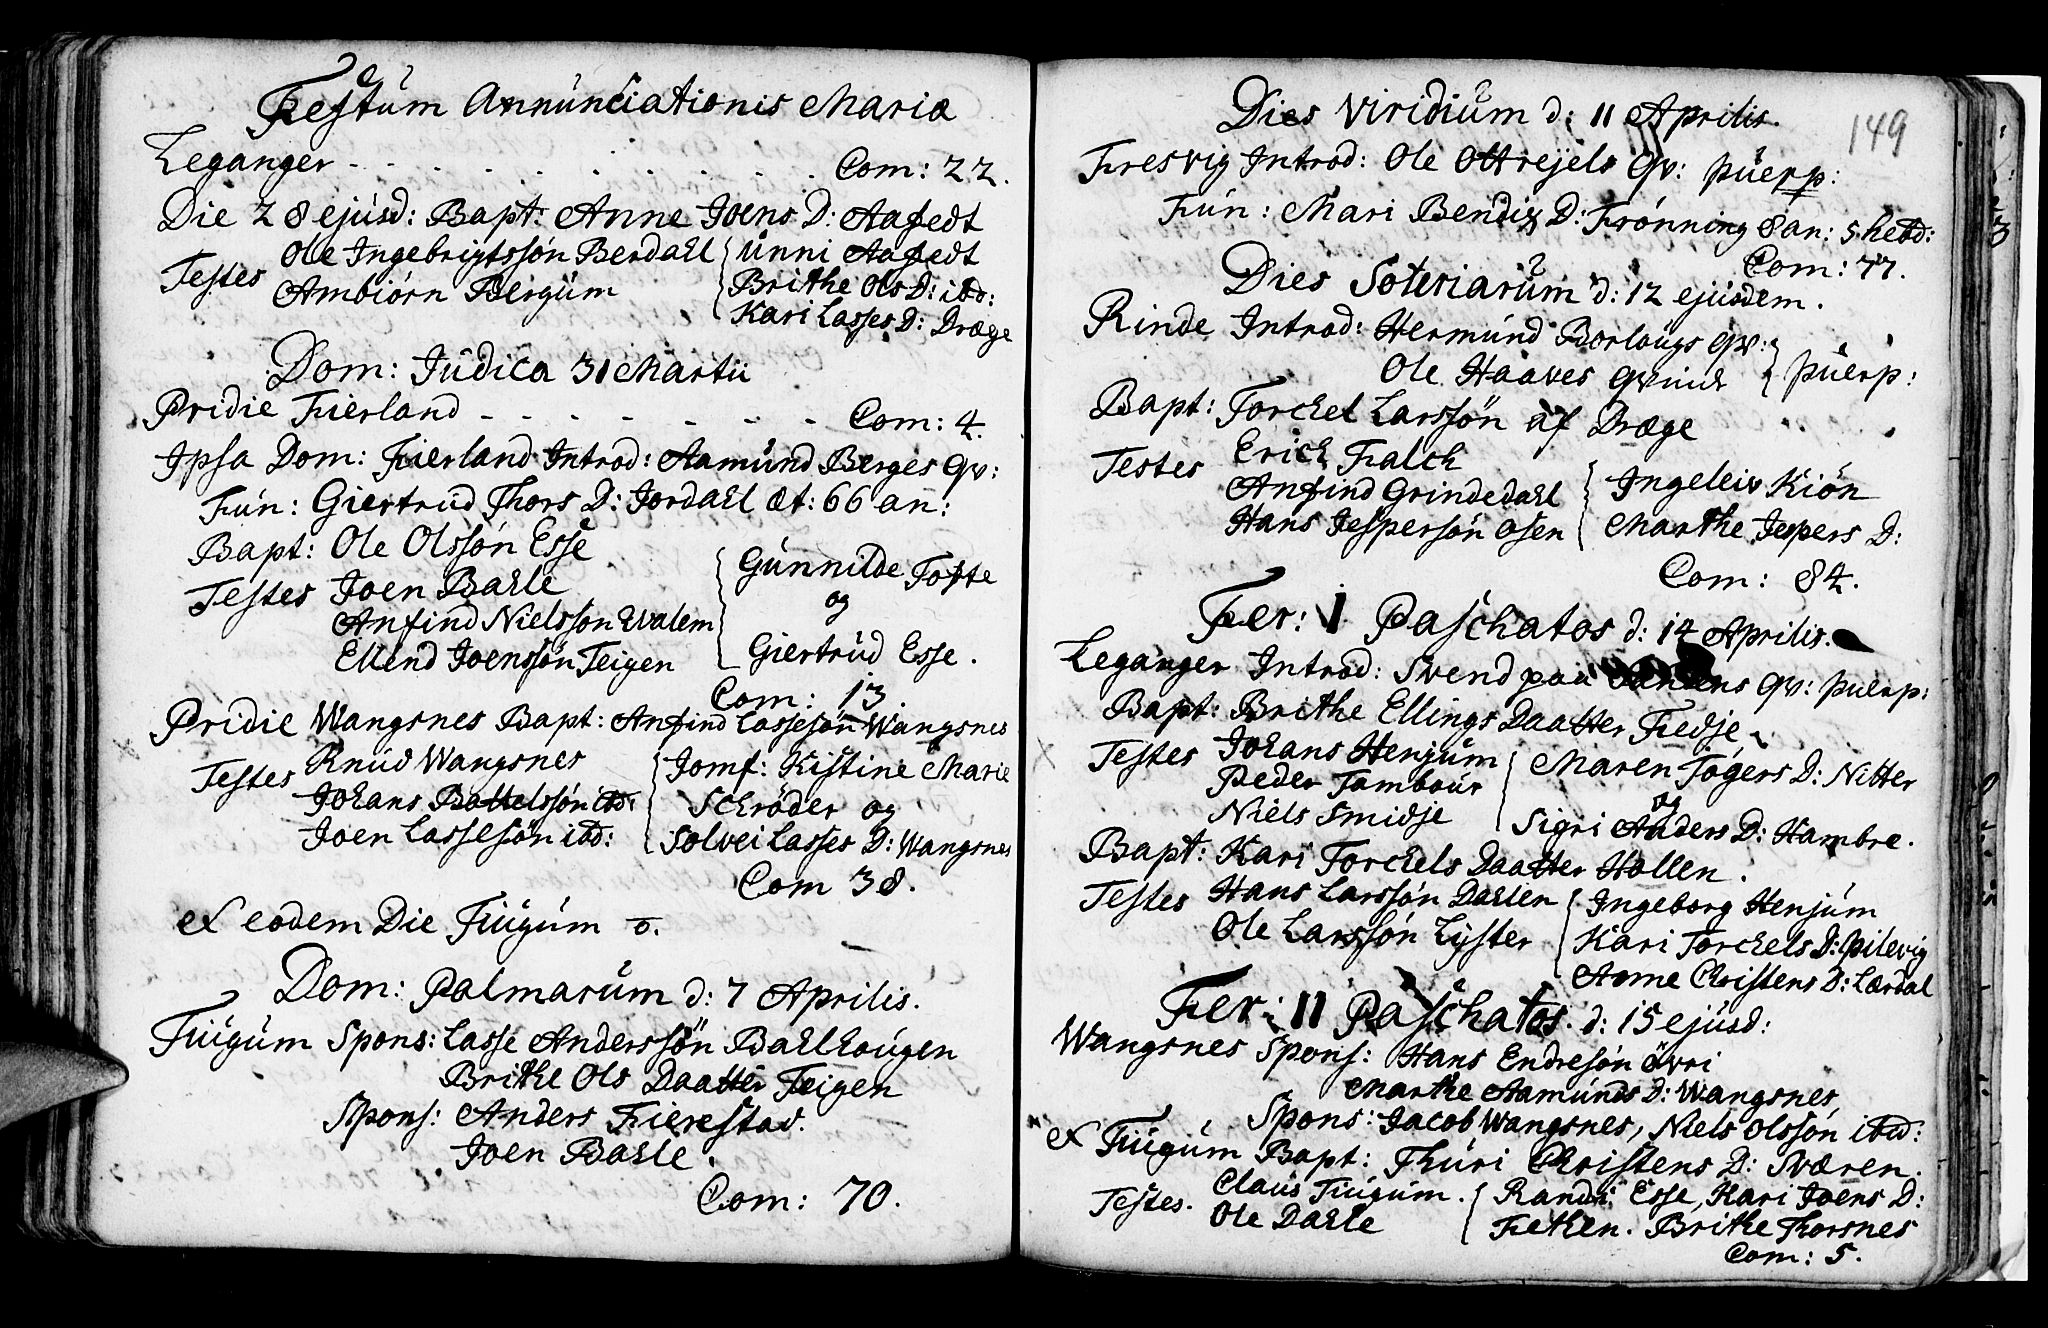 Festum Annunciationis Mariæ
Leganger - - - - - - - - - Com: 22.
Die 28 ejusd: Bapt: Anne Joens D: Aafedt
Testes Ole Ingebrigtssøn Berdahl Unni Aafedt
Ambiørn Bergum Brithe Ols D: ibd:
Kari Lasses D: Dræge
Dom: Judica 31 Martii
Pridie Fierland - - - - - - - Com: 4.
Ipsa Dom: Fierland Introd: Aamund Berges qv:
Fun: Giertrud Thors D: Jordahl æt: 66 an:
Bapt: Ole Olssøn Esse
Testes Joen Bahle Gunnilde Tofte
Anfind Nielssøn Evalem og
Ellend Joenssøn Teigen Giertrud Esse.
Com: 13.
Pridie Wangsnes Bapt: Anfind Lassesøn Wangsnes
Testes Knud Wangsnes Jomf: Kistine Marie
Johans Battelssøn ibd: Schrøder og
Joen Lassesøn ibd: Solvei Lasses D: Wangsnes
Com 38.
et eodem Die Fiugum 0.
Dom: Palmarum d: 7 Aprilis.
Fiugum Spons: Lasse Anderssøn Bahlhaugen
Brithe Ols Daatter Feigen
Spons: Anders Fierestad.
Joen Bahle.
Com: 70.
149
Dies Viridium d: 11 Aprilis.
Fresvig Introd: Ole Ottrejels qv: puerp:
Fun: Mari Bendix D: Frønning 8 an: 5 hebd:
Com: 77.
Dies Soteriarum d: 12 ejusdem.
Rinde Introd: Hermund Borlaugs qv:
Ole Haaves qvinde puerp:
Bapt: Torchel Larssøn af Dræge
Testes Erich Falch
Anfind Grindedahl Ingeleiv Kiøn
Hans Jespersøn Osen Marthe Jespers D:
Com: 84.
Fer: I Paschatos d: 14 Aprilis.
Leganger Introd: Svend paa Sandens qv: puerp:
Bapt: Brithe Ellings Daatter Fedje
Testes Johans Henjum Maren Jøgers D: Nitter
Peder Tambour og
Niels Smidje Sigri Anders D: Hambre.
Bapt: Kari Torchels Daatter Hallen.
Testes Hans Larssøn Dahlen Ingeborg Henjum
Ole Larssøn Lyster Kari Torchels D: Pilevig
Anne Christens D: Lærdal
Fer: II Paschatos. d: 15 ejusd:
Wangsnes Spons: Hans Endresøn Øvri
Marthe Aamunds D: Wangsnes
Spons: Jacob Wangsnes, Niels Olssøn ibd:
et Fiugum Bapt: Thuri Christens D: Sværen.
Testes. Claus Fiugum. Randi Esse, Kari Joens D:
Ole Dahle Fethen. Brithe Thorsnes
Com: 5.